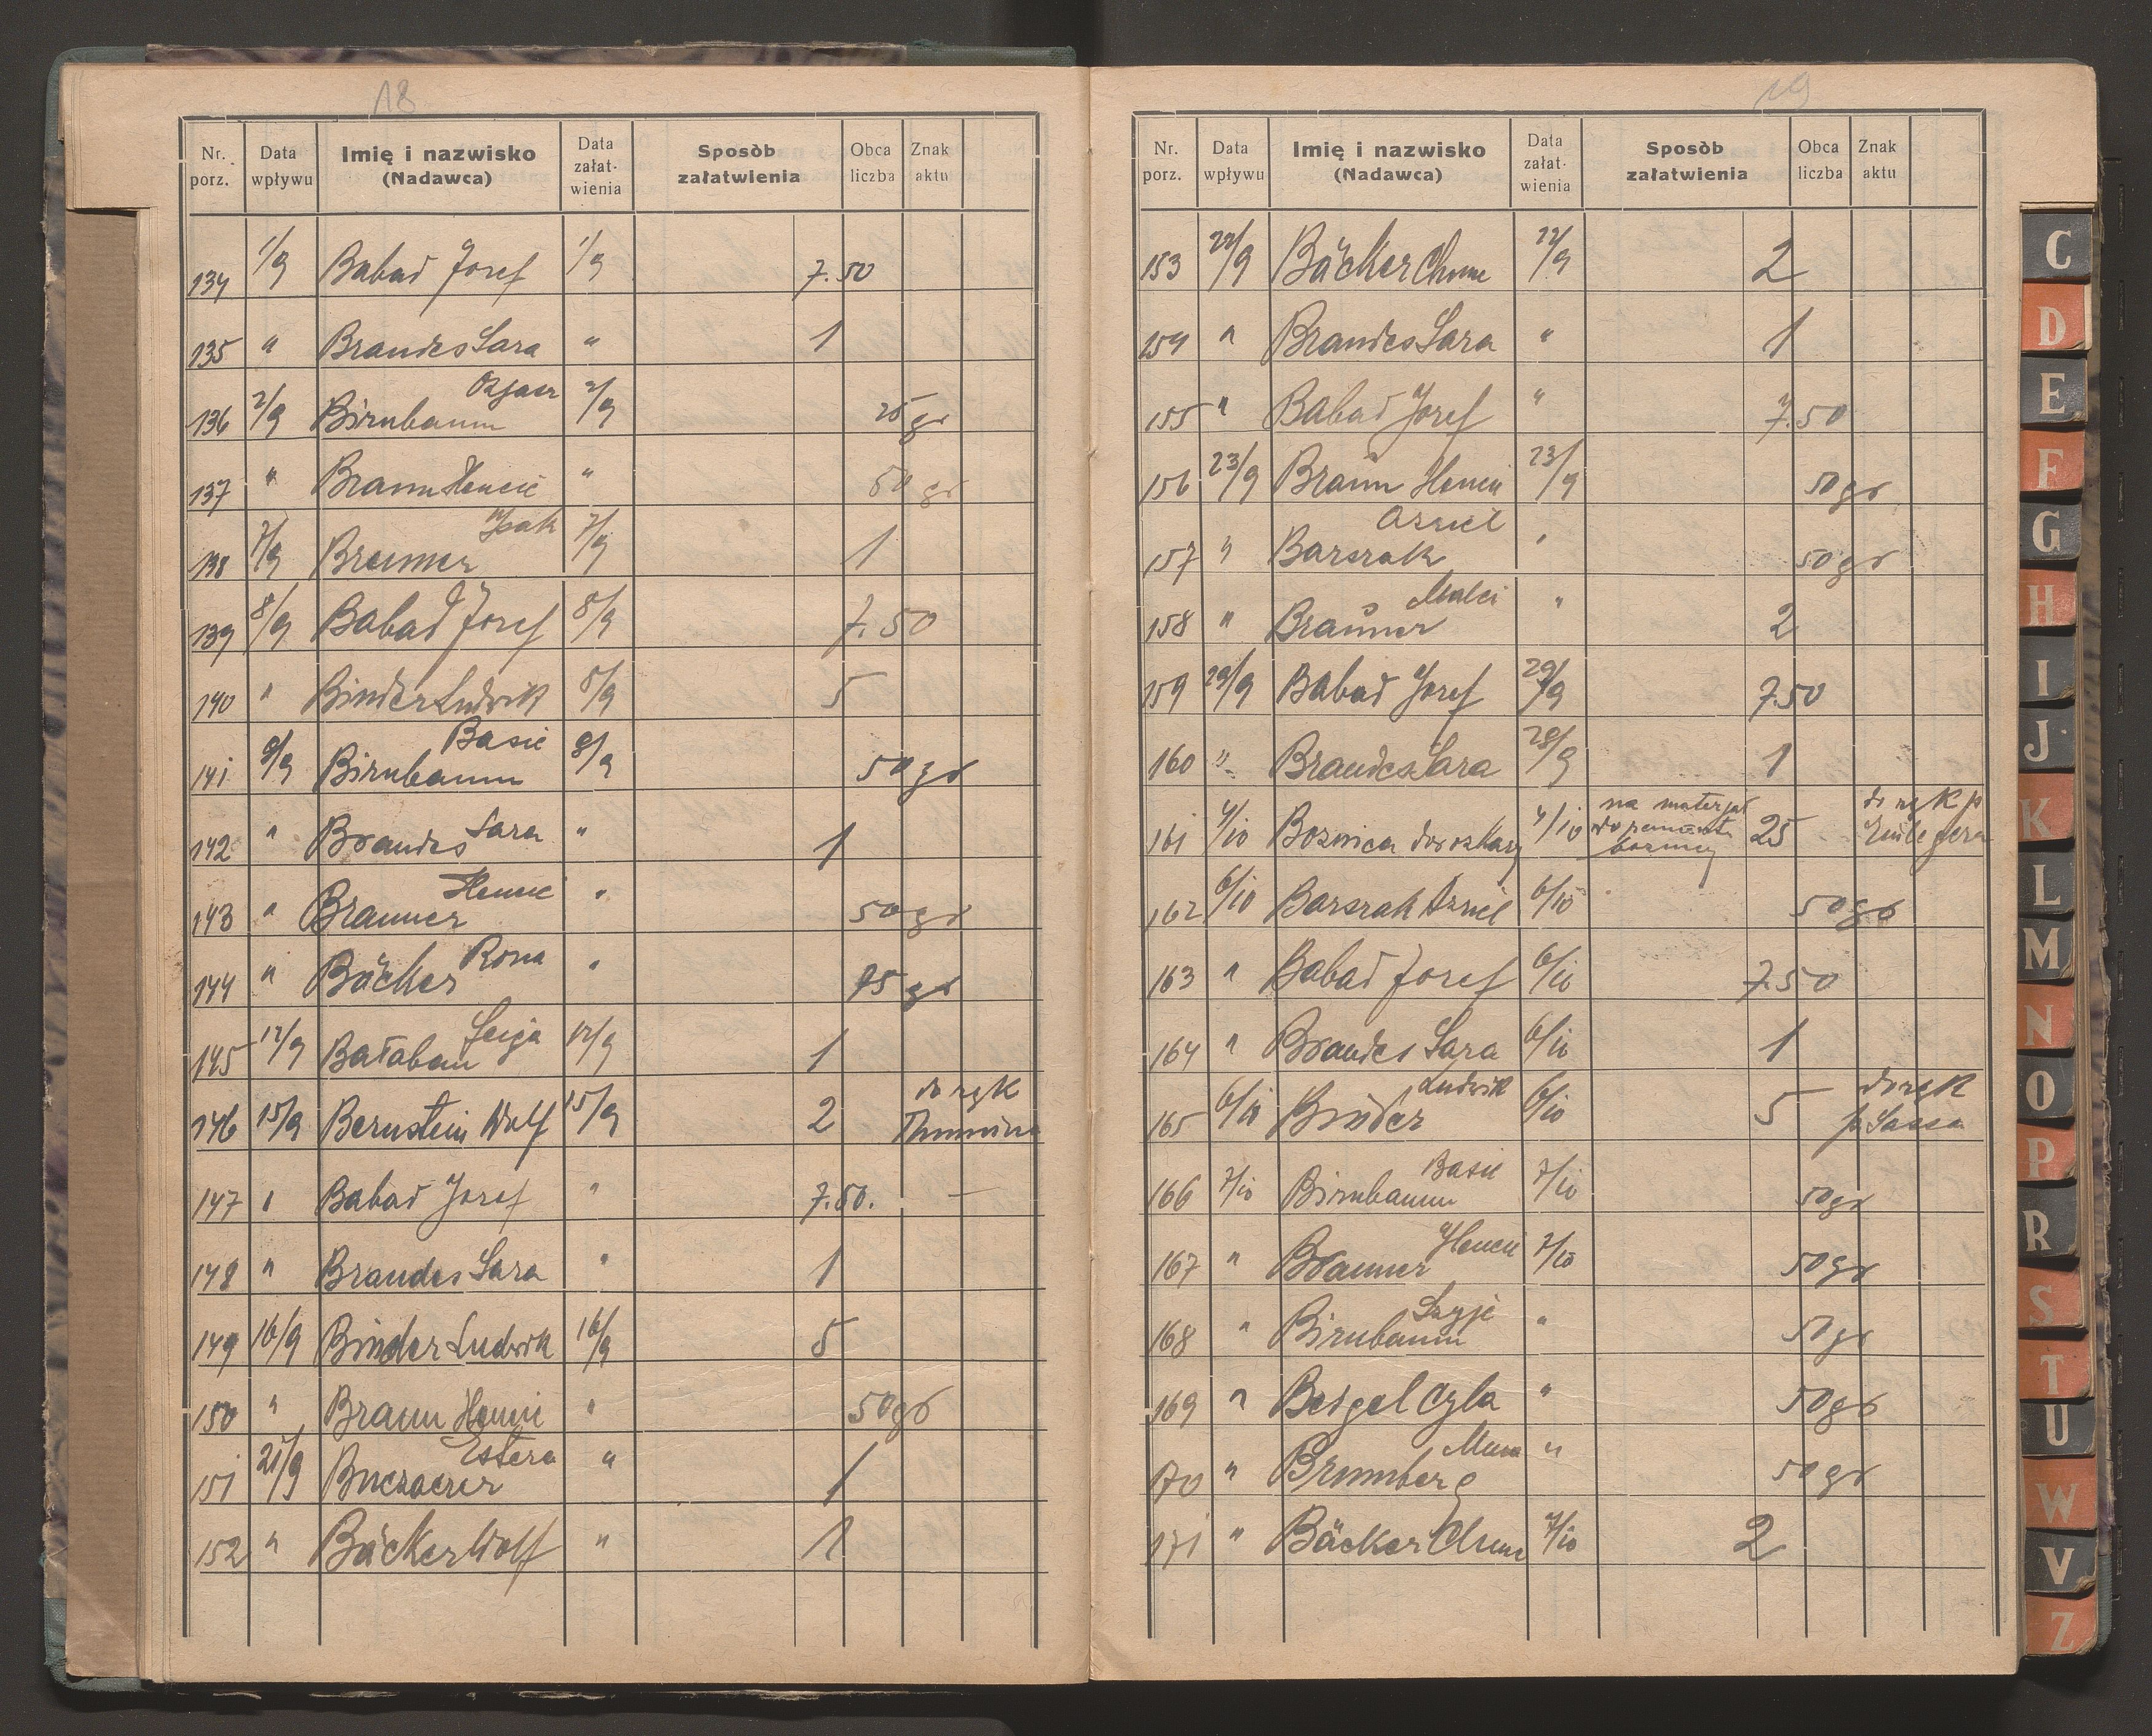 18
Nr. porz. Data wpływu Imię i nazwisko (Nadawca) Data załat- wienia Sposòb załatwienia Obca liczba Znak aktu
134 1/9 Babad Josef 1/9 7.50
135 " Brandes Sara " 1
136 2/9 Birnbaum Ozjasz 2/9 25 gr
137 " Braun Henie " 50 gr
138 7/9 Bremer Izak 7/9 1
139 8/9 Babad Josef 8/9 7.50
140 " Binder Ludwik 8/9 5
141 9/9 Birnbaum Basie 9/9 50 gr
142 " Brandes Sara " 1
143 " Brauner Henie " 50 gr
144 " Bäcker Roza " 75 gr
145 12/9 Bałaban Feiga 12/9 1
146 15/9 Bernstein Wolf 15/9 2 do rąk
147 " Babad Josef " 7.50. —
148 " Brandes Sara " 1
149 16/9 Binder Ludwik 16/9 5
150 " Braun Henie " 50 gr
151 21/9 Buczaczer Estera " 1
152 " Bäcker Wolf " 1
19
Nr. porz. Data wpływu Imię i nazwisko (Nadawca) Data załat- wienia Sposòb załatwienia Obca liczba Znak aktu
153 22/9 Bäcker Chune 22/9 2
154 " Brandes Sara " 1
155 " Babad Josef " 7.50
156 23/9 Braun Henie 23/9 50 gr
157 " Barszak Asriel " 50 gr
158 " Brauner Malci " 2
159 29/9 Babad Josef 29/9 7.50
160 " Brandes Sara 28/9 1
161 4/10 Boznica dorożkarzy 4/10 na materjał do bożnicy 25 do rąk p
162 6/10 Barszak Asriel 6/10 50 gr
163 " Babad Josef 6/10 7.50
164 " Brandes Sara 6/10 1
165 6/10 Binder Ludwik 6/10 5 do rąk p. Sassa
166 7/10 Birnbaum Basie 7/10 50 gr
167 " Brauner Henie 7/10 50 gr
168 " Birnbaum Szyje " 50 gr
169 " Beigel Cyla " 50 gr
170 " Brumberg " 50 gr
171 " Bäcker Chune 7/10 2
C
D
E
F
G
H
I
J
K
L
M
N
O
P
R
S
T
U
W
V
Z